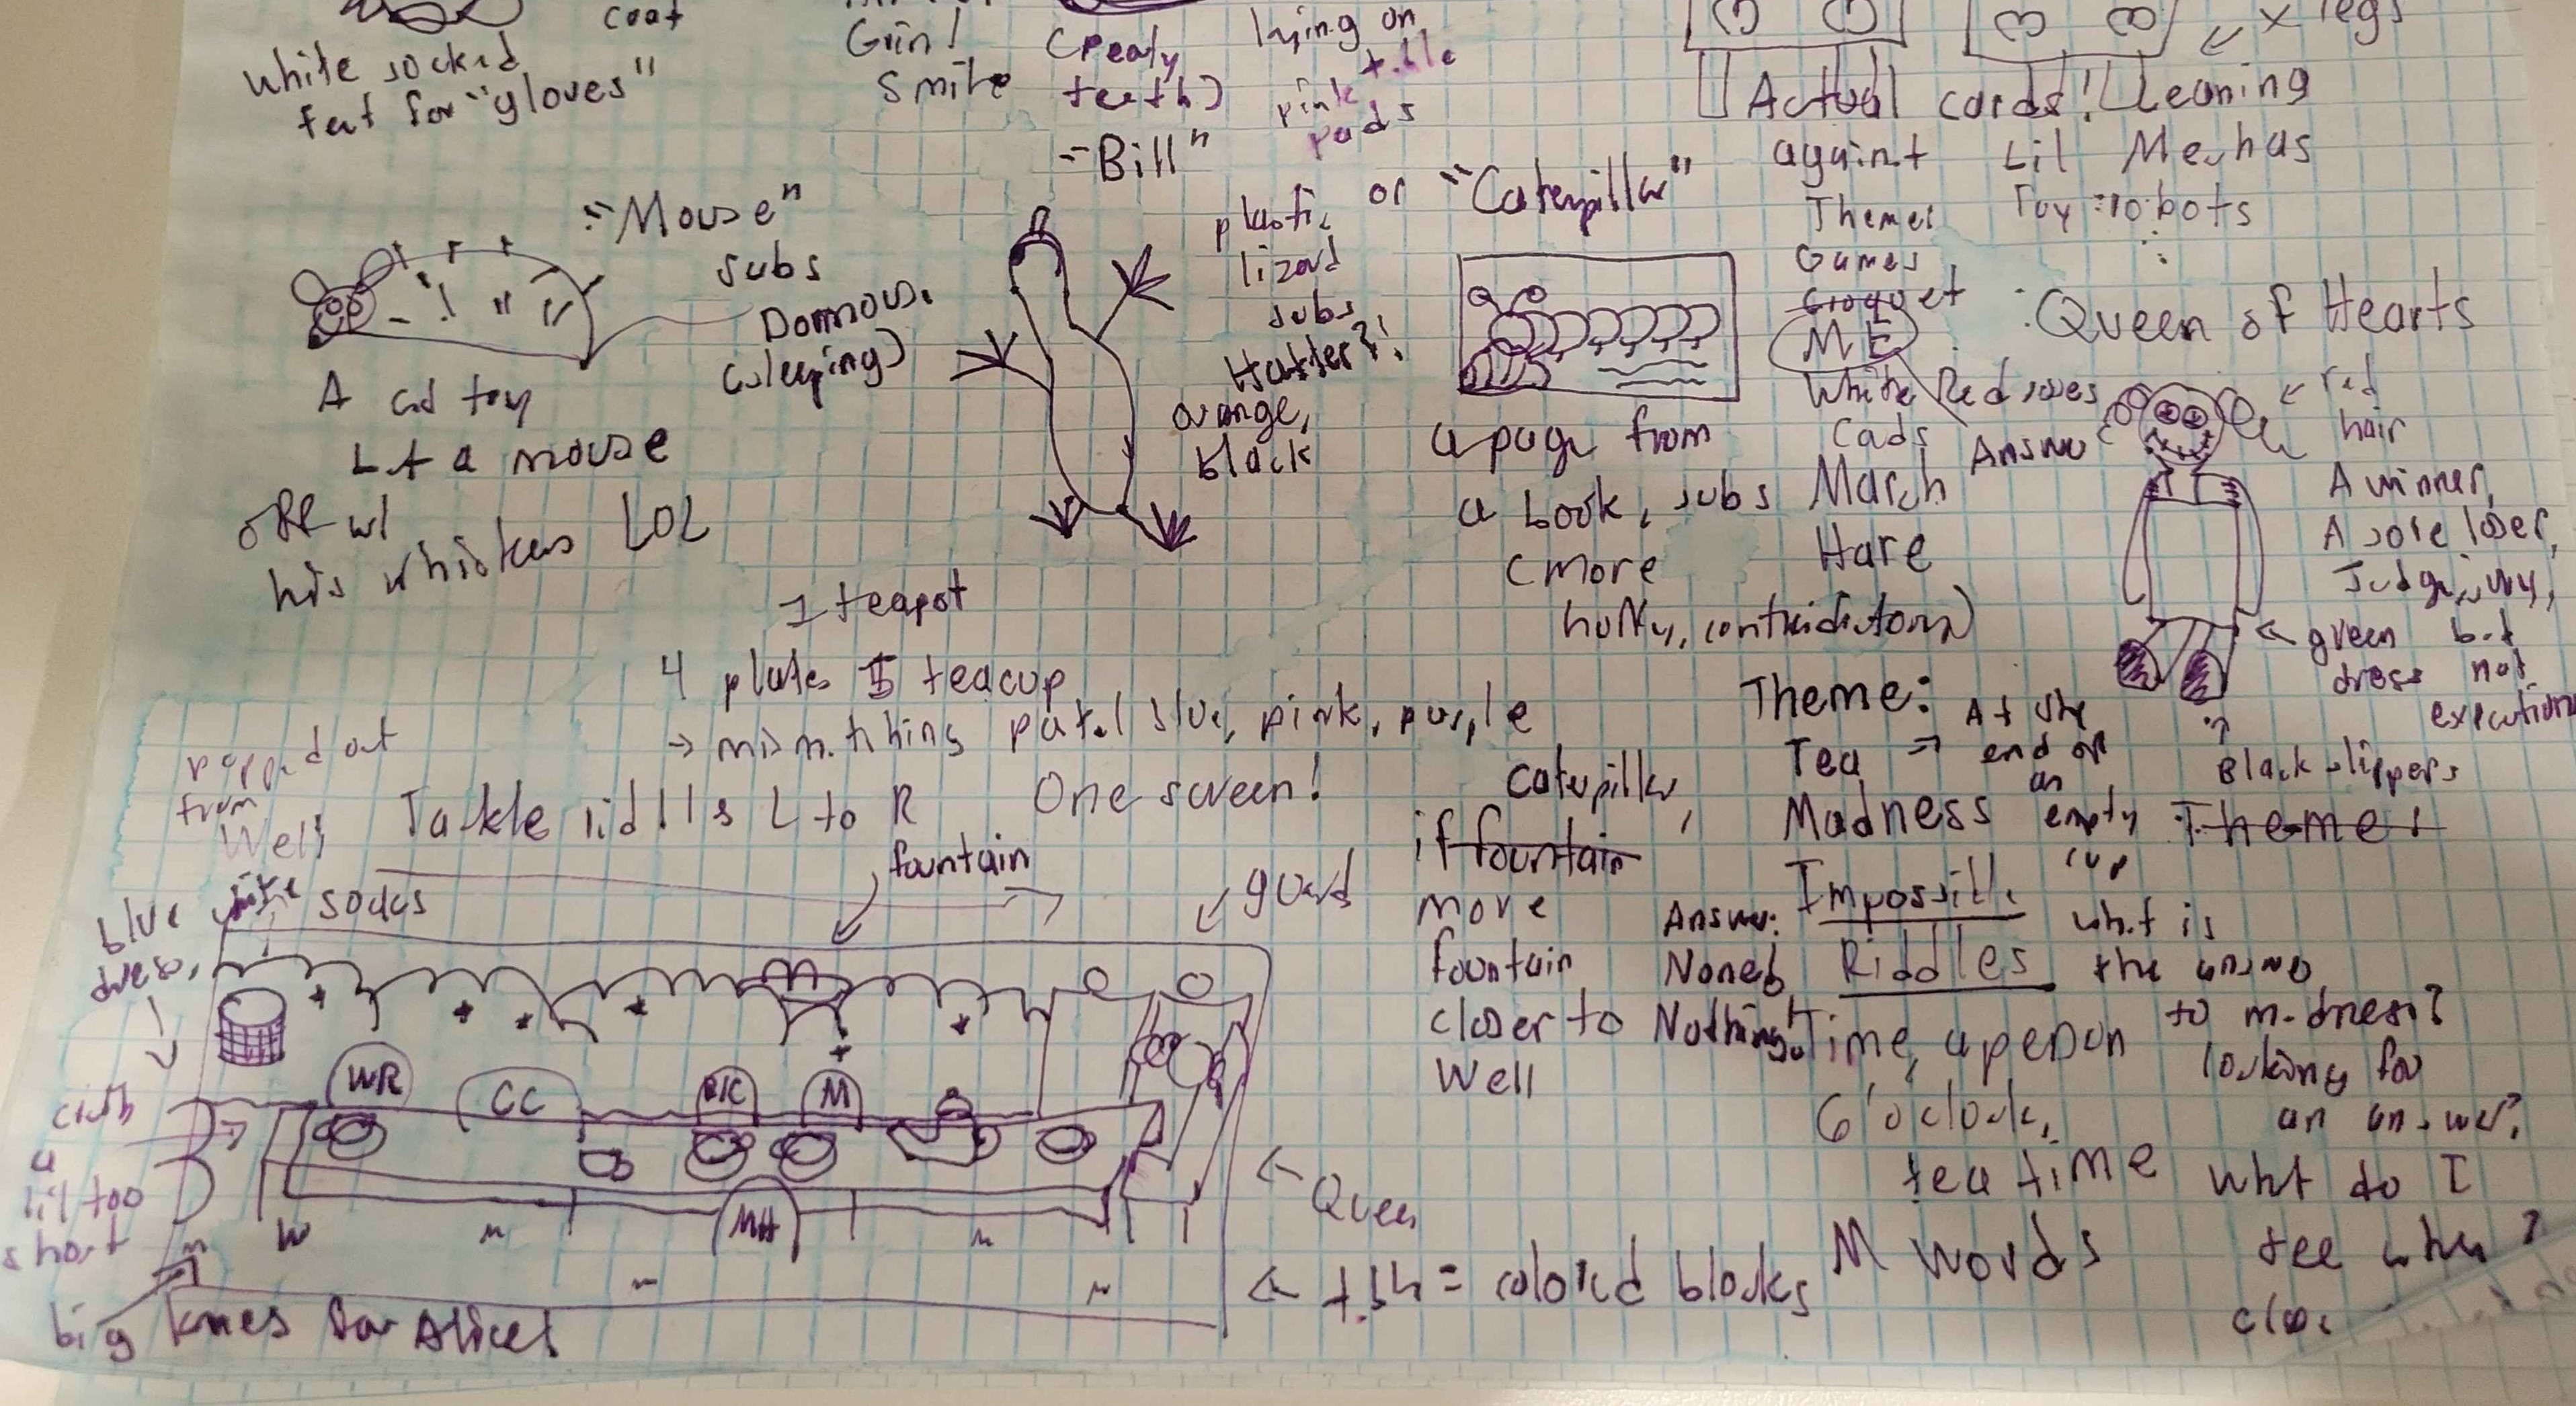 coat
white socked
feet for "gloves"
Grin!
Smile
(pearly
teeth)
lying on
table
pink
pads
x legs
Actual cards! Leaning
against Lil Mechas
Toy robots
"Bill"
plastic
lizard
subs
Hatter?!
orange,
black
or "Caterpillar"
a page from
a book, subs March
Hare
(more
huffy, contradictory)
"Mouse"
subs
Dormous.
(sleeping)
A cat toy
of a mouse
off w/
his whiskers LOL
Themes
Games
Croquet
ME
White Red roses
Cards
Answer
Queen of Hearts
red
hair
A winner,
A sore loser,
Judge, jury,
but
not
execution
green
dress
Black slippers
1 teapot
4 plates 5 teacup
→ mismatching pastel blue, pink, purple
popped out
from
Well
Tackle riddles L to R
One screen!
Caterpillar,
if fountain
more
fountain
closer to
Well
Theme:
Tea →
Madness
Impossible
Riddles
Time, a person
6 o'clock,
tea time
M words
At the
end of
an
empty
cup
Theme!
Answer:
None!
Nothing!
what is
the answer
to madness?
looking for
an answer?
what do I
see when?
clos
blue
dress,
white
socks
fountain
guard
WR
CC
M
MH
cloth
a
lil too
short
Queen
← tab = colored blocks
big knees for Alice!